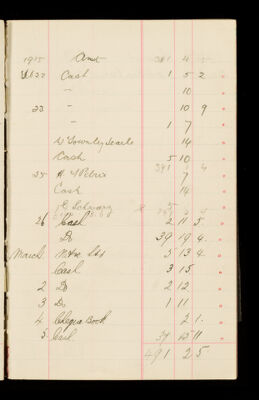 1915 Amt 381 4
Feb 22 Cash 1 5 2
" 10
23 " 10 9
" 1 7
W Townley Searle 14
Cash 5 10
25 H 7
Cash 14
26 Cash 2 11 5
Do 39 19 4
March 5 13 4
Cash 3 15
2 Do 2 12
3 Do 1 11
4 Cheque Book 2 1
5 Cash 37 15 11
491 2 5